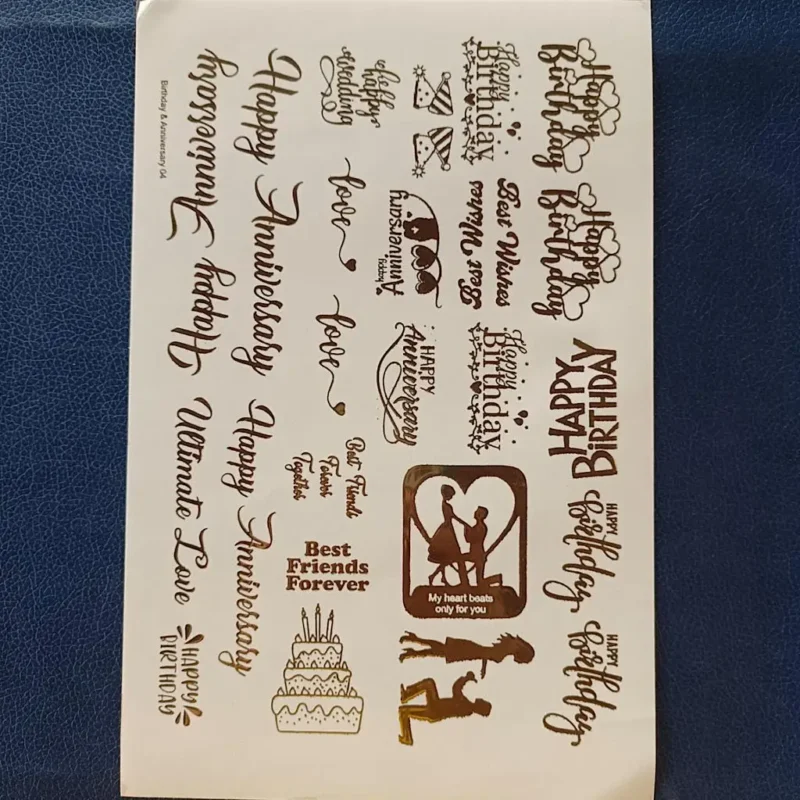 Happy
Birthday
Happy
Birthday
HAPPY
BiRTHDAY
HAPPY
Birthday
HAPPY
Birthday
Happy
Birthday
Best Wishes
Best Wishes
Happy
Birthday
My heart beats
only for you
Happy
Anniversary
HAPPY
Anniversary
happy
wedding
love
love
Best Friends
Forever
Together
Best
Friends
Forever
Happy Anniversary
Happy Anniversary
Happy Anniversary
Ultimate Love
HAPPY
BIRTHDAY
Birthday & Anniversary 04